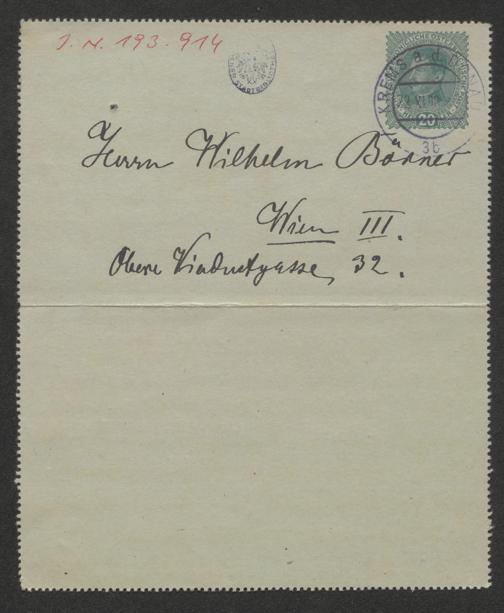 I. N. 193.914
KREMS a. d. DONAU
20
3b
Herrn Wilhelm Börner
Wien III.
Obere Viaductgasse, 32.